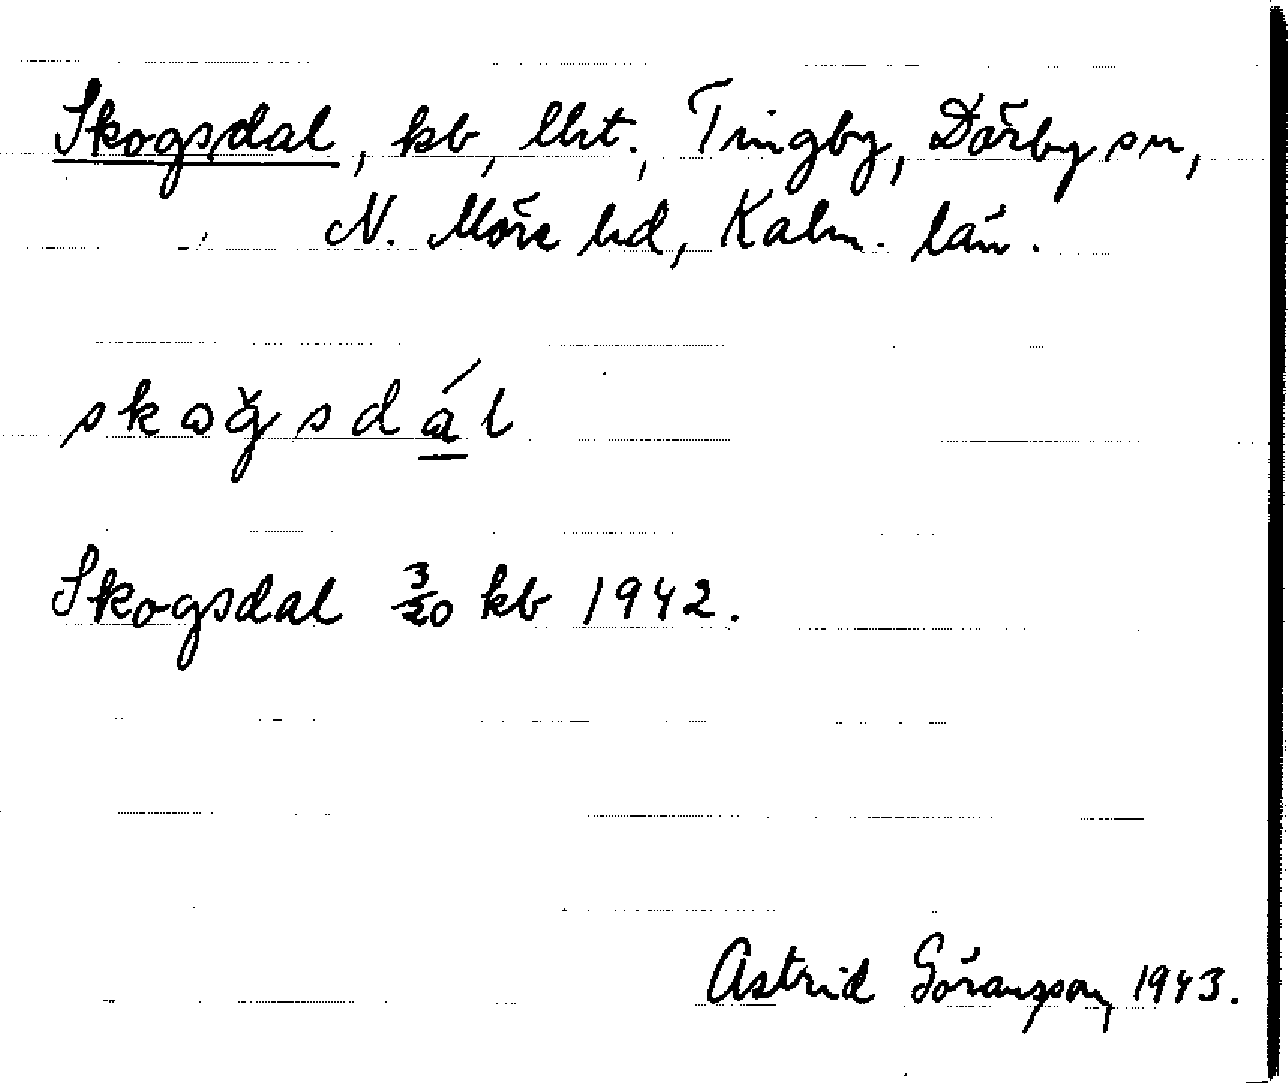 Skogsdal, kb, Ult., Tingby, Dörby sn,
N. Möre hd, Kalm. län.
skog̀sdál
Skogsdal 3/20 kb 1942.
Astrid Göransson, 1943.